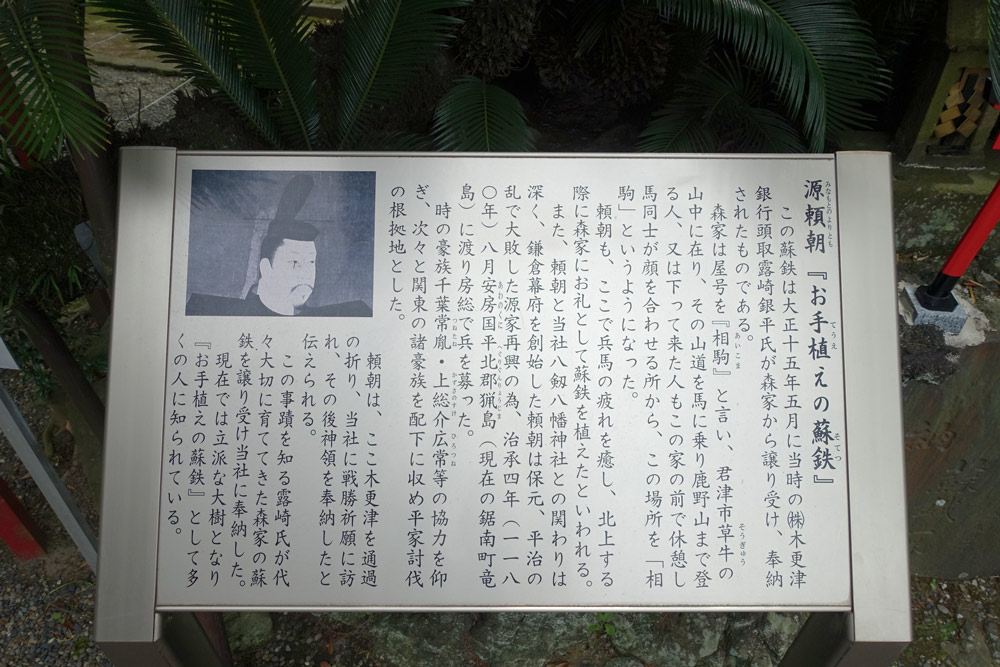 源頼朝『お手植えの蘇鉄』
みなもとのよりとも
てうえ
そてつ
この蘇鉄は大正十五年五月に当時の㈱木更津
銀行頭取露崎銀平氏が森家から譲り受け、奉納
されたものである。
森家は屋号を『相駒』と言い、君津市草牛の
あいこま
そうぎゅう
山中に在り、その山道を馬に乗り鹿野山まで登
る人、又は下って来た人もこの家の前で休憩し
馬同士が顔を合わせる所から、この場所を「相
駒」というようになった。
頼朝も、ここで兵馬の疲れを癒し、北上する
際に森家にお礼として蘇鉄を植えたといわれる。
また、頼朝と当社八剱八幡神社との関わりは
深く、鎌倉幕府を創始した頼朝は保元、平治の
乱で大敗した源家再興の為、治承四年（一一八
〇年）八月安房国平北郡猟島（現在の鋸南町竜
あわのくに
へぐりぐんりょうしま
島）に渡り房総で兵を募った。
時の豪族千葉常胤・上総介広常等の協力を仰
つねたね
かずさのすけ
ひろつね
ぎ、次々と関東の諸豪族を配下に収め平家討伐
の根拠地とした。
頼朝は、ここ木更津を通過
の折り、当社に戦勝祈願に訪
れ、その後神領を奉納したと
伝えられる。
この事蹟を知る露崎氏が代
々大切に育ててきた森家の蘇
鉄を譲り受け当社に奉納した。
現在では立派な大樹となり
『お手植えの蘇鉄』として多
くの人に知られている。